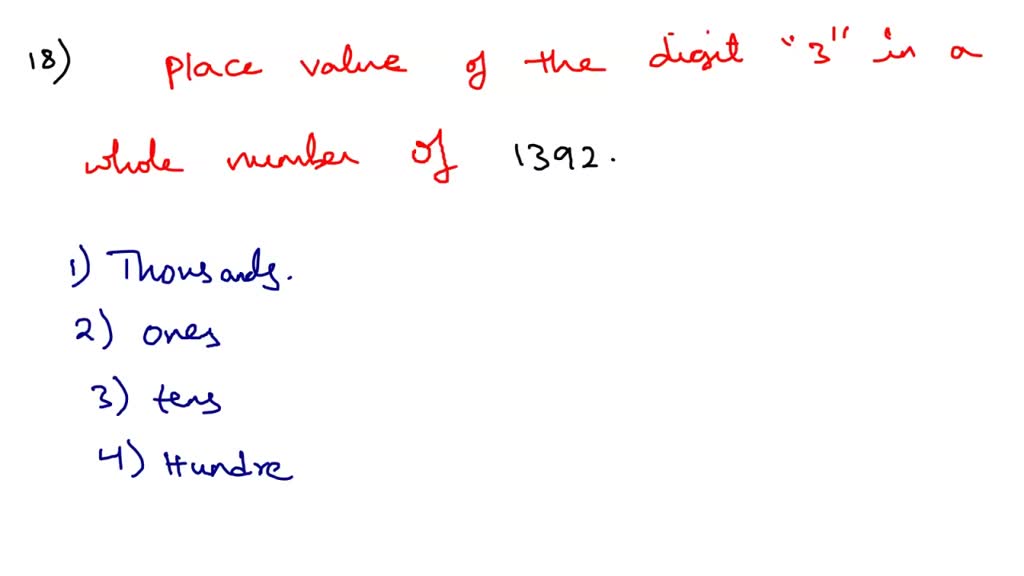 18) place value of the digit "3" in a
whole number of 1392.
1) Thousands.
2) ones
3) tens
4) Hundre